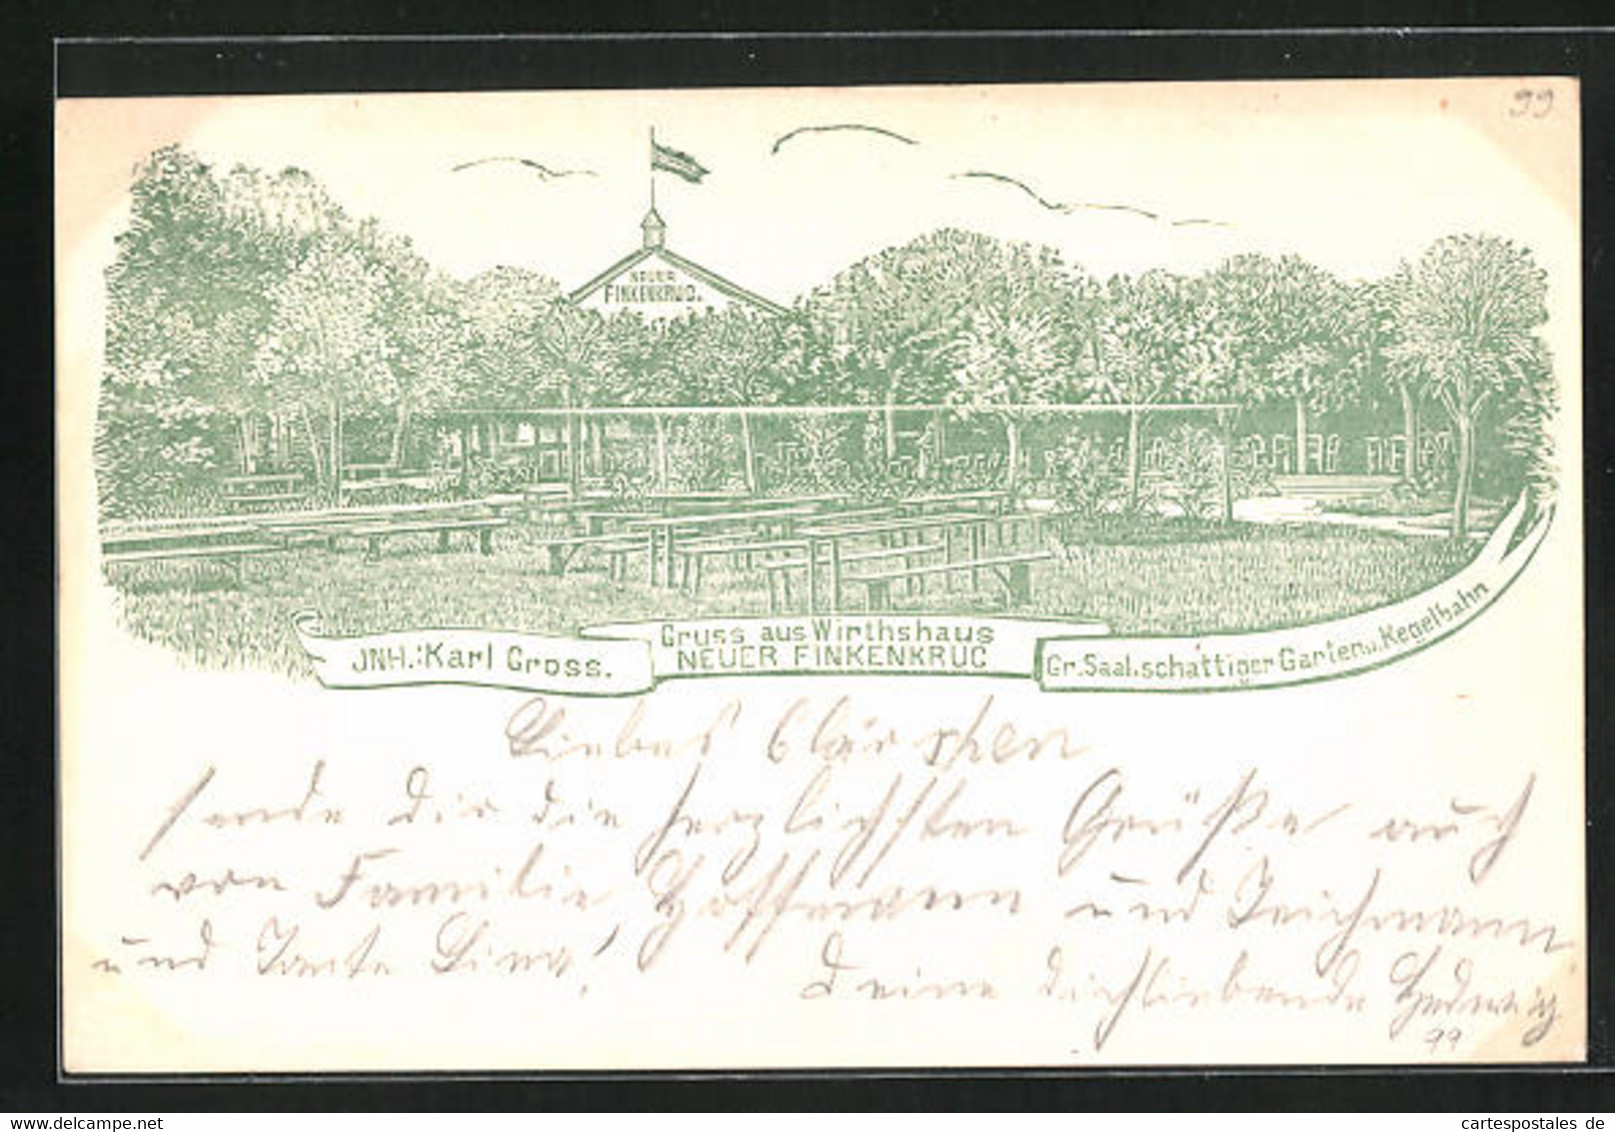 99
NEUER
FINKENKRUG.
JNH.: Karl Gross.
Gruss aus Wirthshaus
NEUER FINKENKRUG
Gr. Saal, schattiger Garten u. Kegelbahn
Liebes Clärchen
sende Dir die herzlichsten Grüße auch
von Familie Hoffmann und Teichmann
und Tante Lina!
Deine Dichliebende Hedwig
99
delcampe.net
cartespostales de